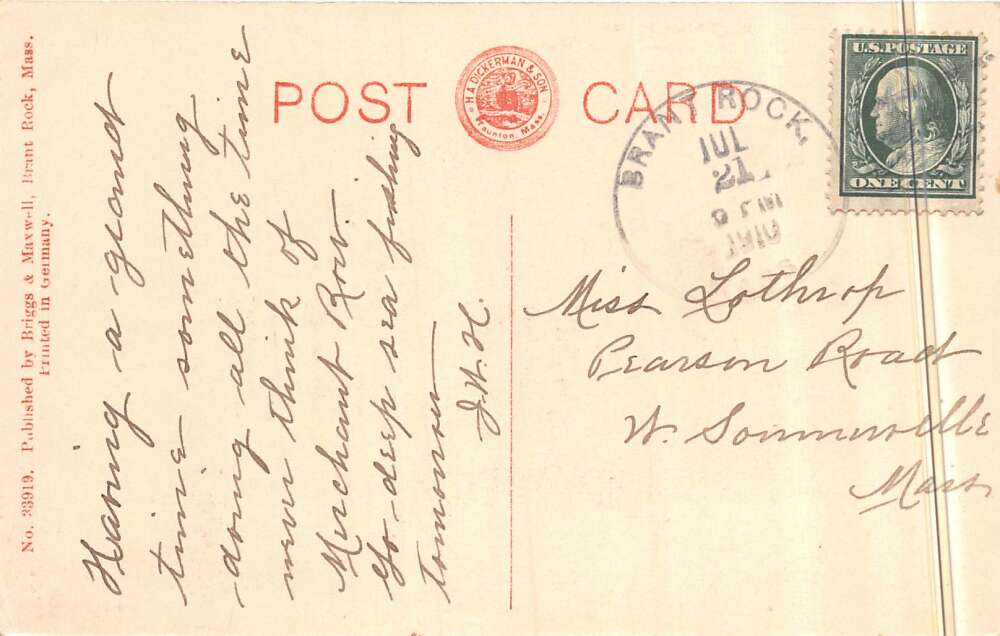 No. 33919. Published by Briggs & Maxwell, Brant Rock, Mass.
Printed in Germany.
POST CARD
H A DICKERMAN & SON
Taunton, Mass.
BRANT ROCK,
JUL
21
9 PM
1910
U.S. POSTAGE
ONE CENT
Having a grand
time something
doing all the time
never think of
Merchant Row.
Go deep sea fishing
tomorrow
J.W.H.
Miss Lothrop
Pearson Road
W. Sommerville
Mass